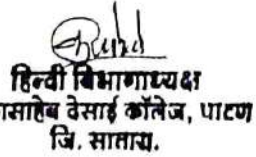 हिन्दी विभागाध्यक्ष
साहेब देसाई कॉलेज, पाटण
जि. सातारा.